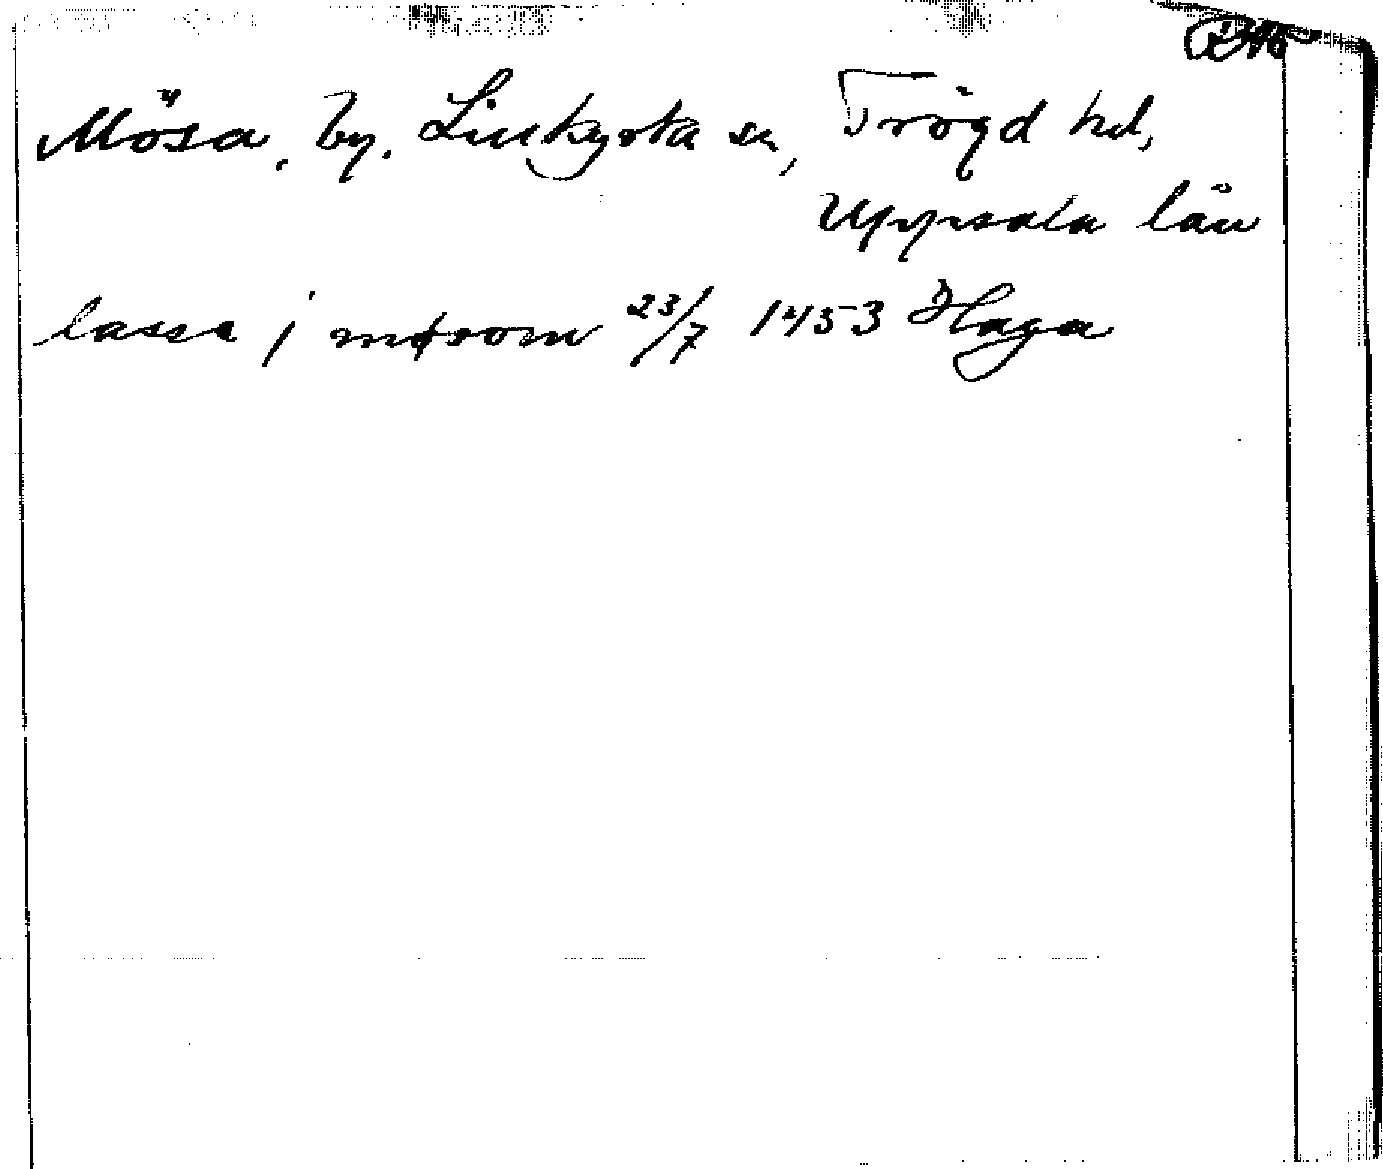 Mösa, by. Litslena sn, Trögd hd,
Uppsala län
lasse j møsom 23/7 1453 Haga